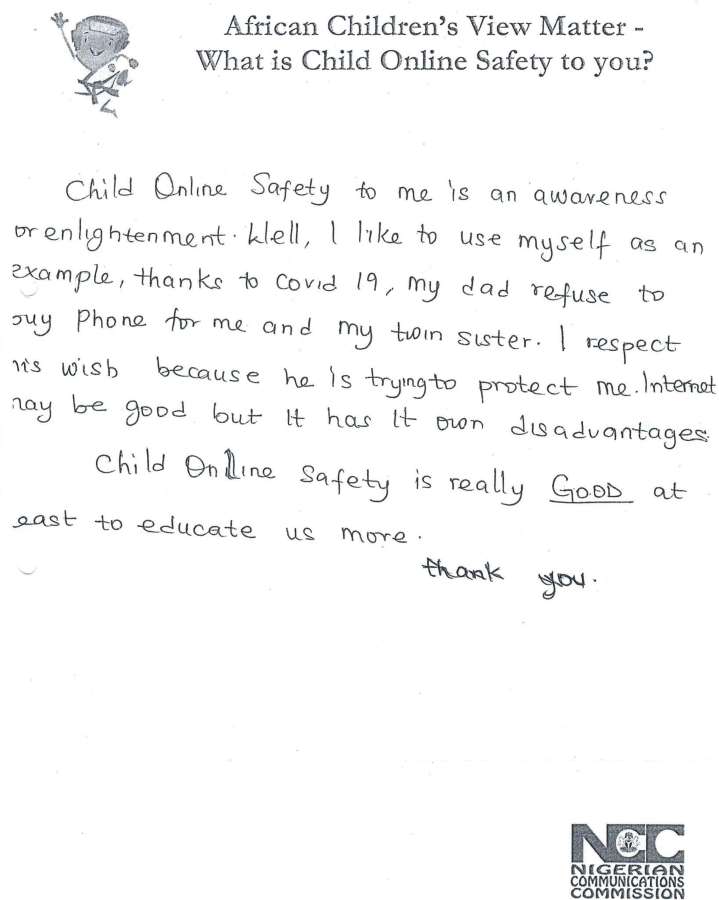 African Children's View Matter -
What is Child Online Safety to you?
Child Online Safety to me is an awareness
or enlightenment. Well, I like to use myself as an
example, thanks to Covid 19, my dad refuse to
buy Phone for me and my twin sister. I respect
his wish because he is trying to protect me. Internet
may be good but it has it own disadvantages.
Child Online Safety is really GOOD at
least to educate us more.
thank you.
NCC
NIGERIAN
COMMUNICATIONS
COMMISSION